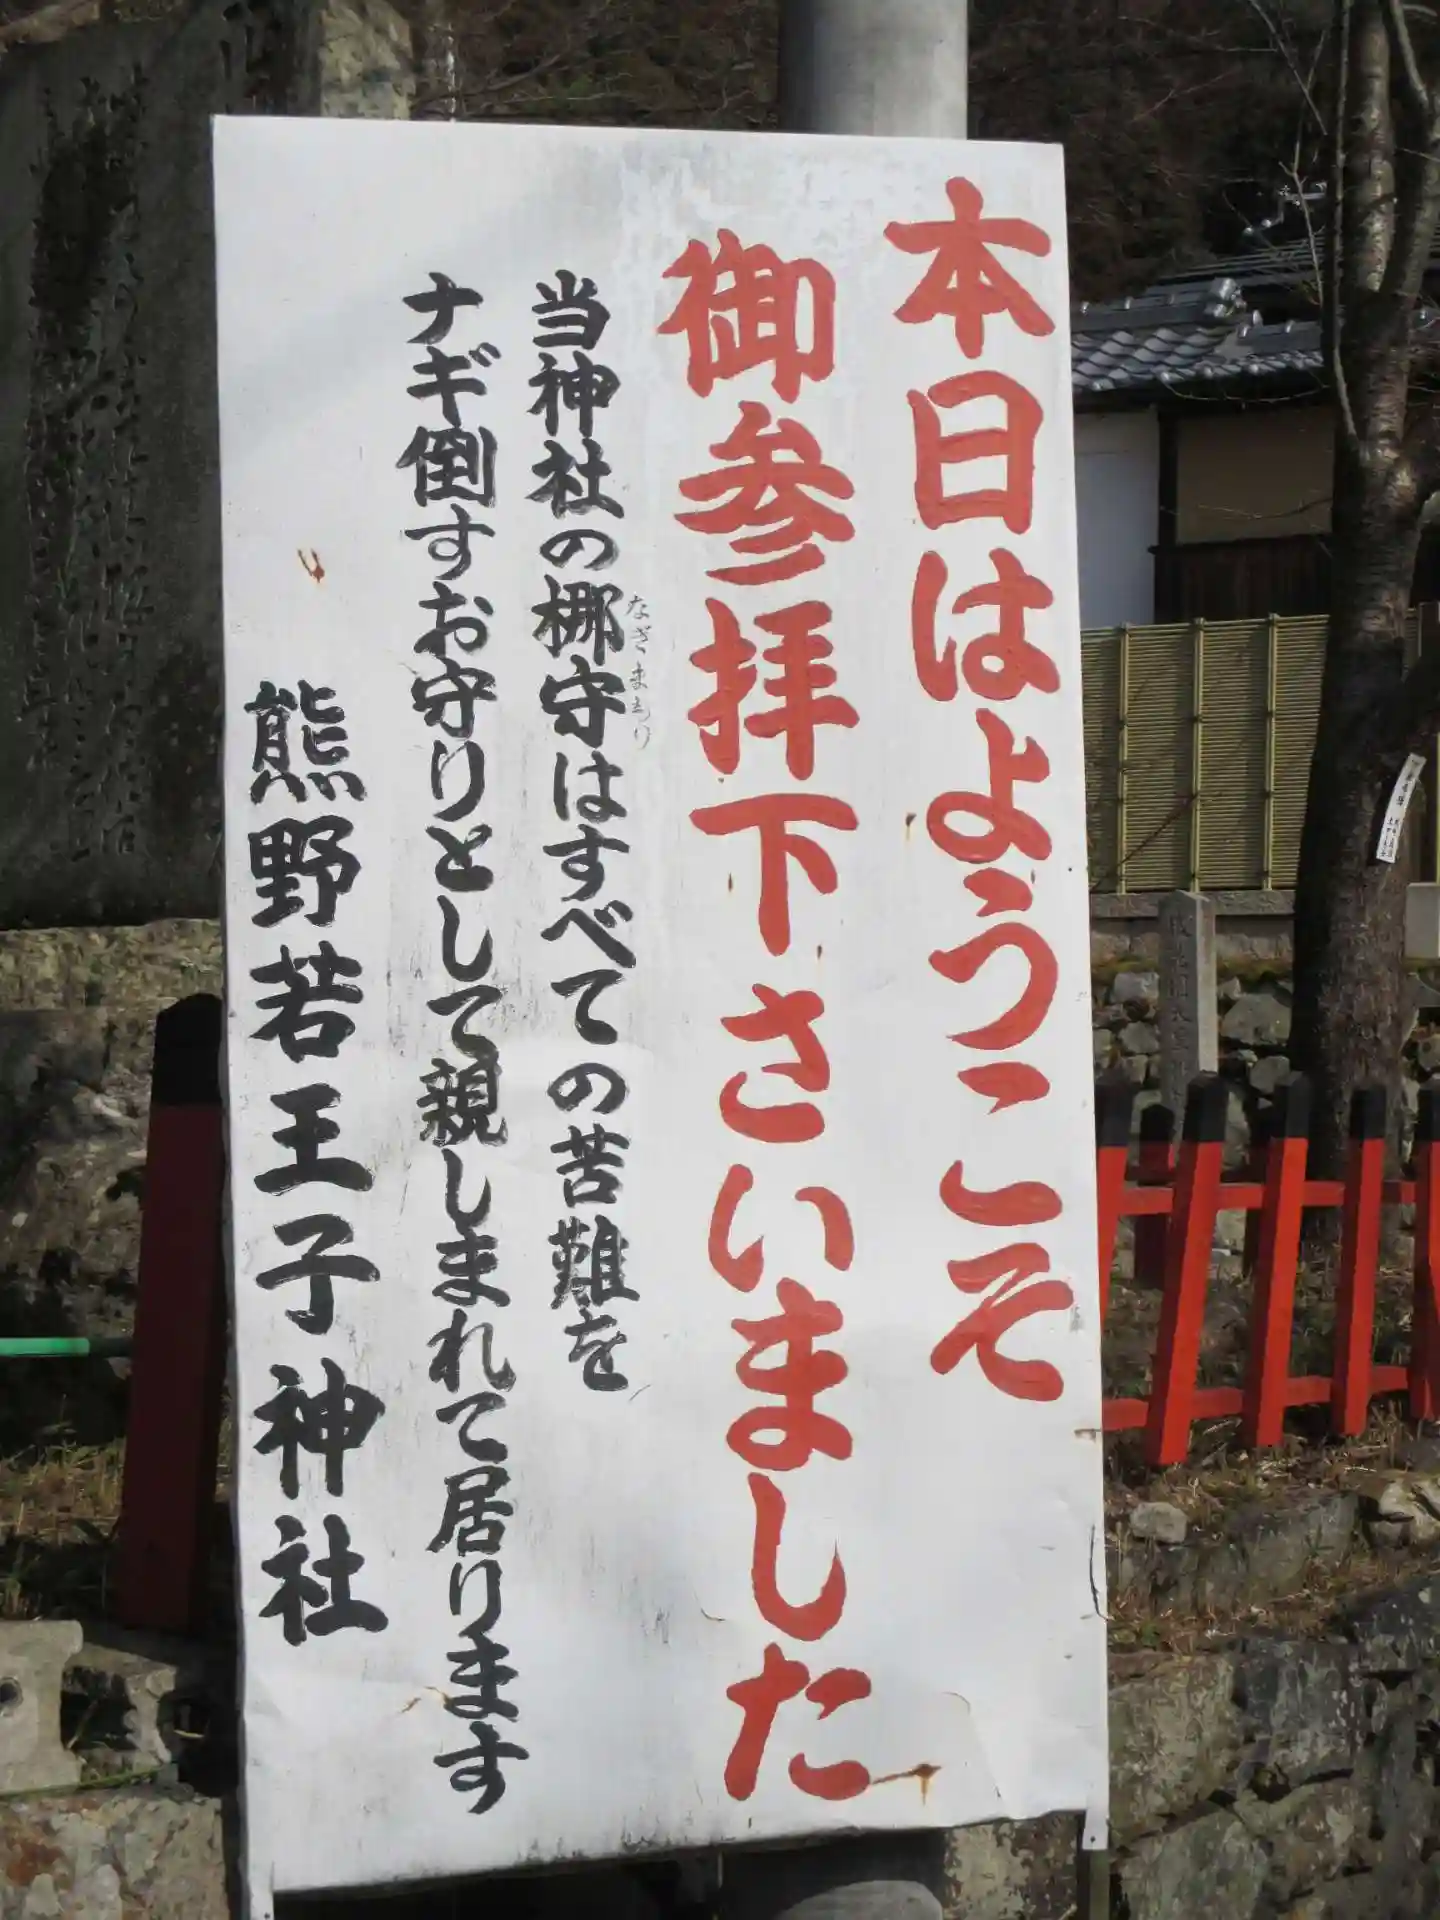 本日はようこそ
御参拝下さいました
当神社の梛守はすべての苦難を
なぎまもり
ナギ倒すお守りとして親しまれて居ります
熊野若王子神社